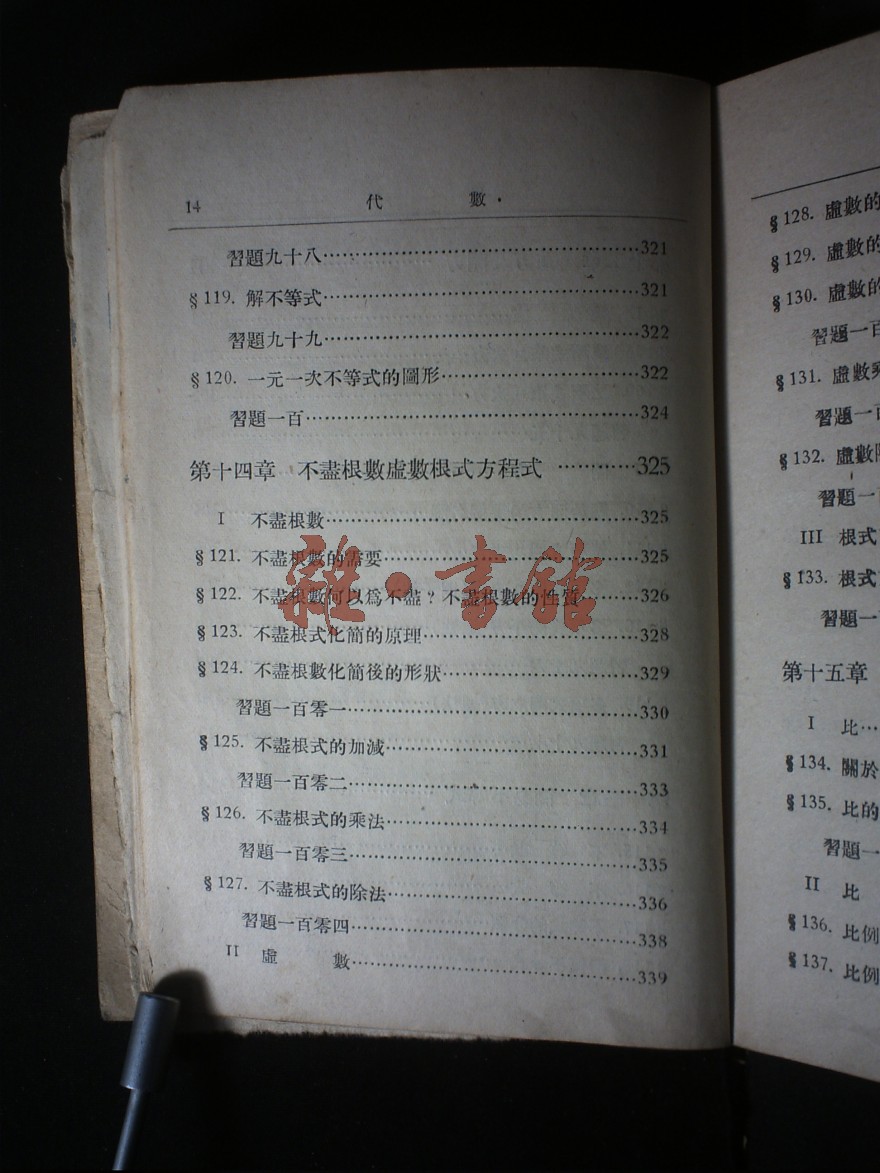 14 代 數
習題九十八……321
§119. 解不等式……321
習題九十九……322
§120. 一元一次不等式的圖形……322
習題一百……324
第十四章 不盡根數虛數根式方程式……325
I 不盡根數……325
§121. 不盡根數的需要……325
§122. 不盡根數何以爲不盡？不盡根數的性質……326
§123. 不盡根式化簡的原理……328
§124. 不盡根數化簡後的形狀……329
習題一百零一……330
§125. 不盡根式的加減……331
習題一百零二……333
§126. 不盡根式的乘法……334
習題一百零三……335
§127. 不盡根式的除法……336
習題一百零四……338
II 虛 數……339
雜·書館
§128. 虛數的
§129. 虛數的
§130. 虛數的
習題一百
§131. 虛數乘
習題一百
§132. 虛數除
習題一
III 根式
§133. 根式
習題一
第十五章
I 比…
§134. 關於
§135. 比的
習題一
II 比
§136. 比例
§137. 比例